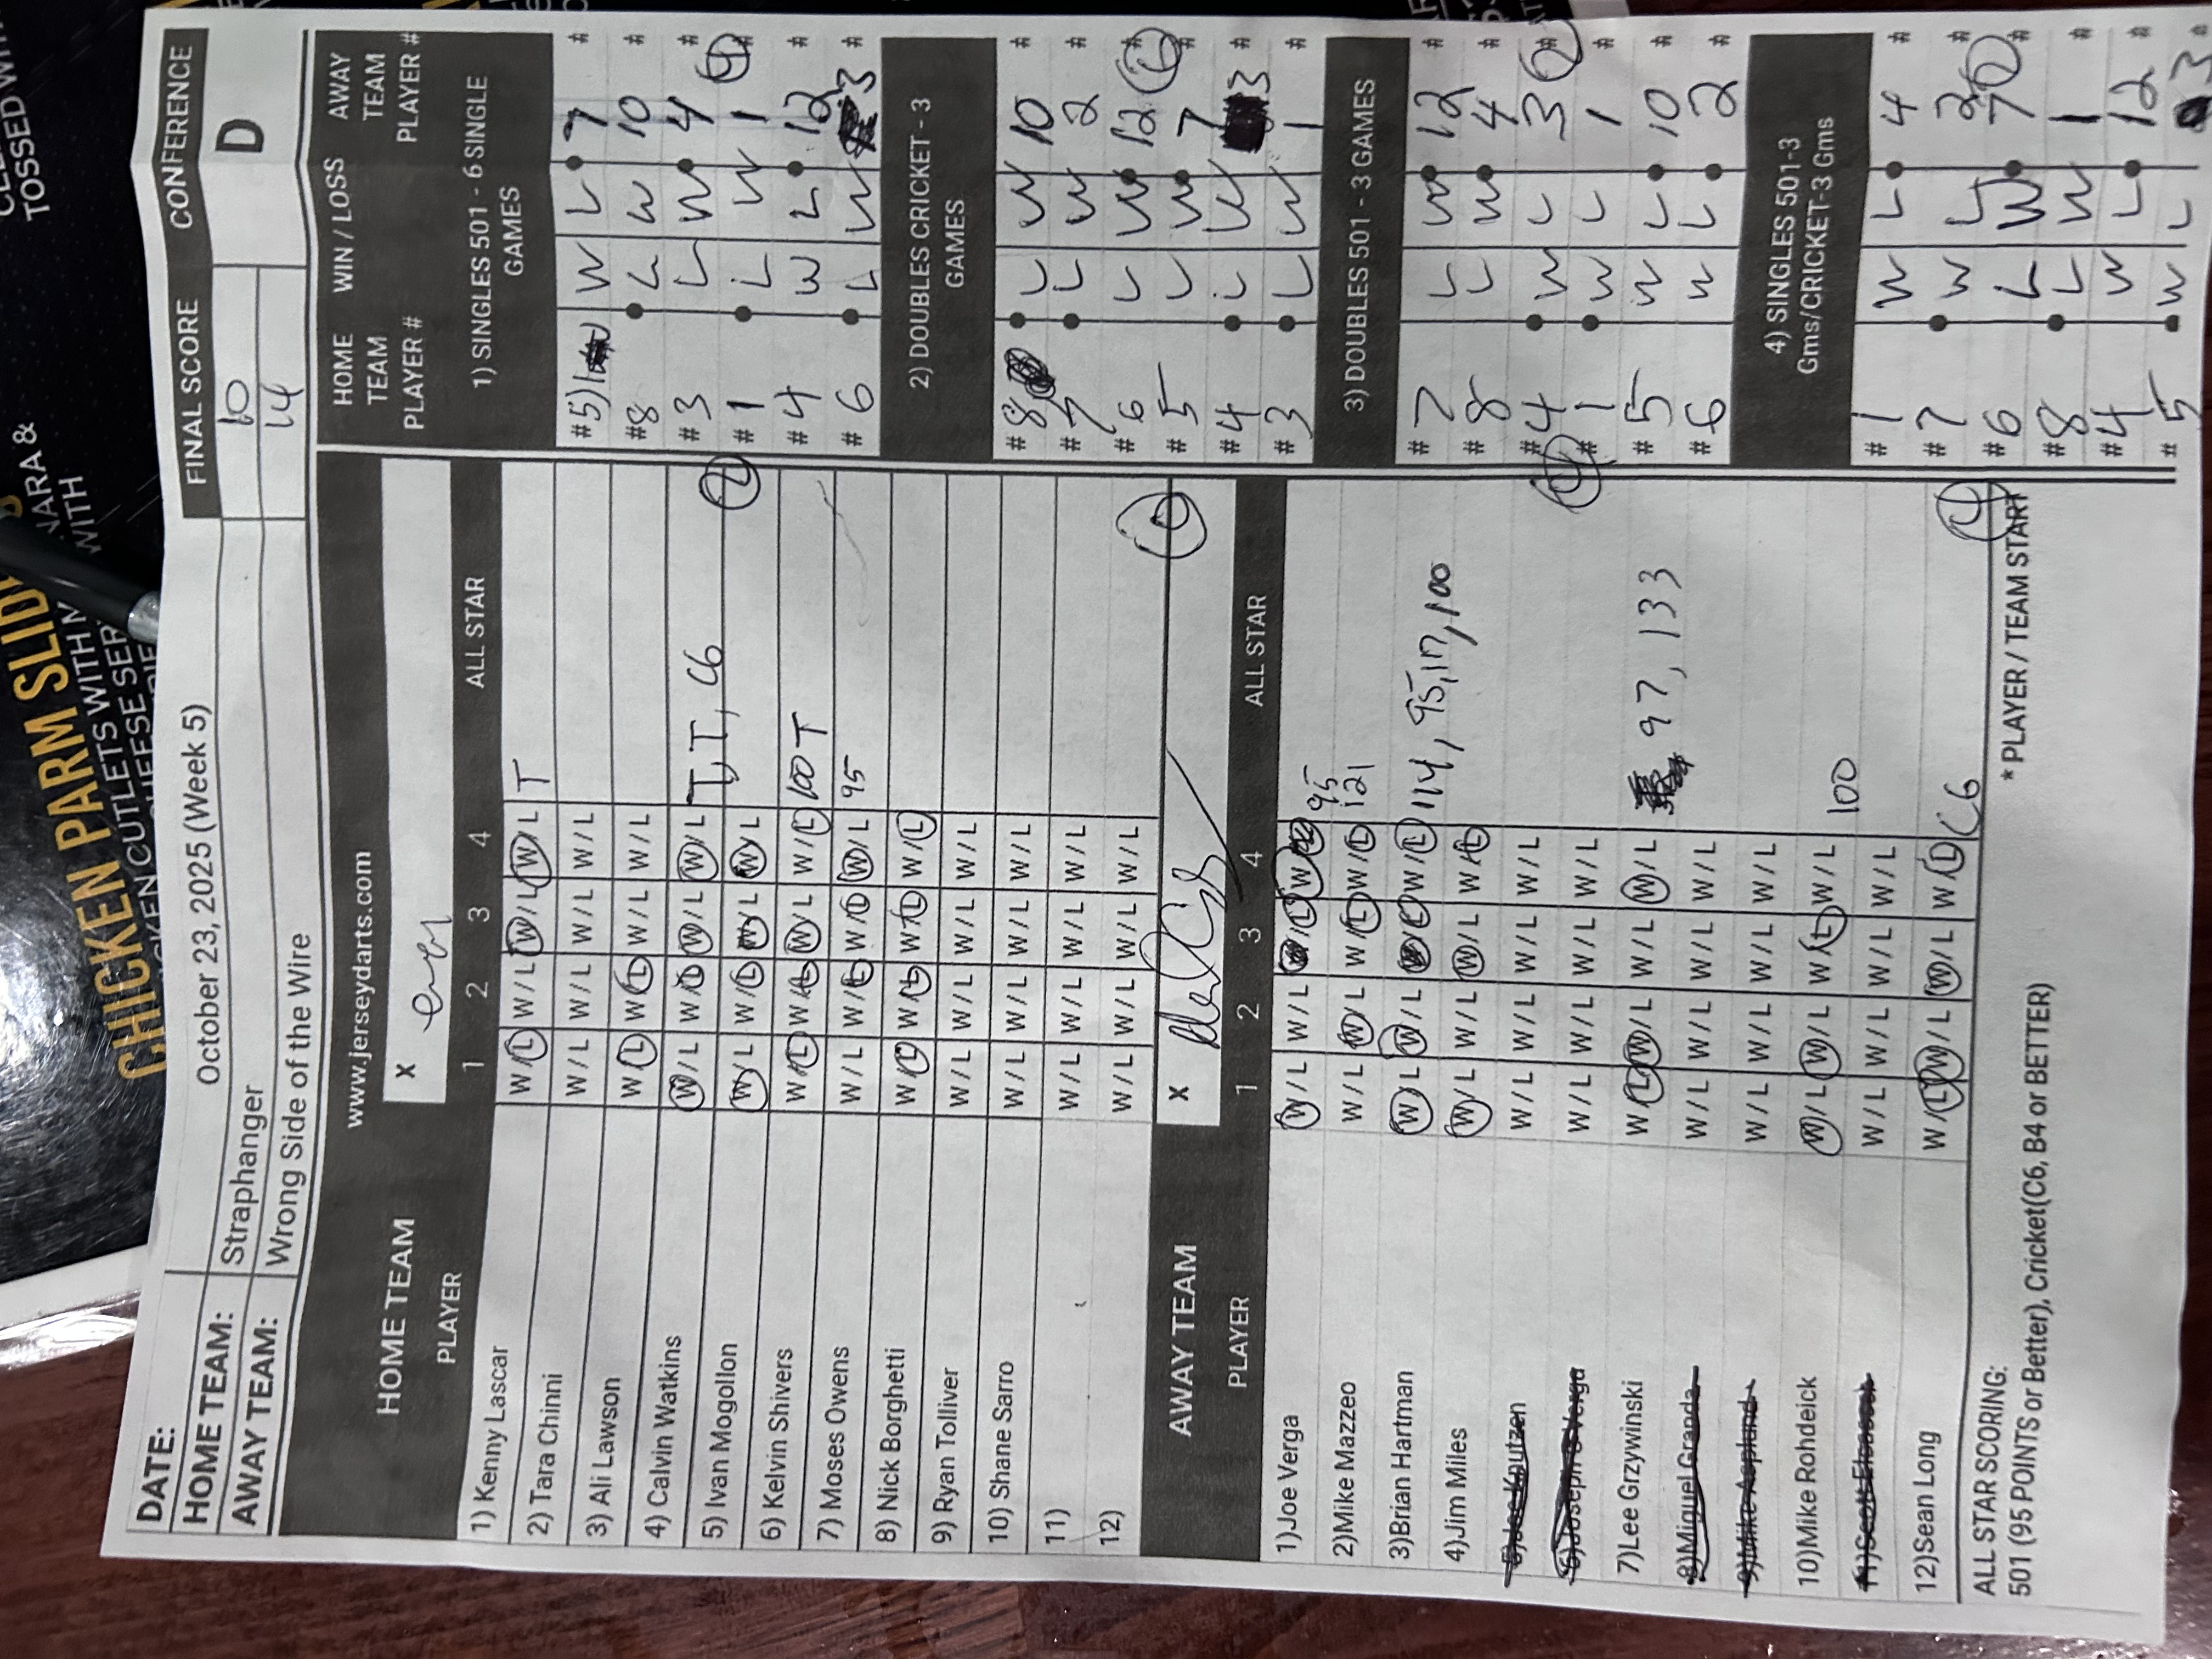 CHICKEN PARM SLID
CKEN CUTLETS WITH M
WITH
TOSSED WI
DATE: October 23, 2025 (Week 5) FINAL SCORE CONFERENCE
HOME TEAM: Straphanger 10 D
AWAY TEAM: Wrong Side of the Wire 14
www.jerseydarts.com
HOME TEAM X
PLAYER 1 2 3 4 ALL STAR
1) Kenny Lascar W/L W/L W/L W/L T
2) Tara Chinni W/L W/L W/L W/L
3) Ali Lawson W/L W/L W/L W/L
4) Calvin Watkins W/L W/L W/L W/L T, T, C6
5) Ivan Mogollon W/L W/L W/L W/L
6) Kelvin Shivers W/L W/L W/L W/L 100 T
7) Moses Owens W/L W/L W/L W/L 95
8) Nick Borghetti W/L W/L W/L W/L
9) Ryan Tolliver W/L W/L W/L W/L
10) Shane Sarro W/L W/L W/L W/L
11) W/L W/L W/L W/L
12) W/L W/L W/L W/L
AWAY TEAM X
PLAYER 1 2 3 4 ALL STAR
1)Joe Verga W/L W/L W/L 95
2)Mike Mazzeo W/L W/L W/L W/L 121
3)Brian Hartman W/L W/L W/L 114, 95, 100
4)Jim Miles W/L W/L W/L W/L
5)Joe Knutzen W/L W/L W/L W/L
6)Joseph S Verga W/L W/L W/L W/L
7)Lee Grzywinski W/L W/L W/L W/L 97, 133
8)Miguel Granda W/L W/L W/L W/L
9)Mike Asplund W/L W/L W/L W/L
10)Mike Rohdeick W/L W/L W/L W/L 100
W/L W/L W/L W/L
12)Sean Long W/L W/L W/L W/L C6
ALL STAR SCORING: * PLAYER / TEAM START
501 (95 POINTS or Better), Cricket(C6, B4 or BETTER)
HOME TEAM PLAYER # WIN / LOSS AWAY TEAM PLAYER #
1) SINGLES 501 - 6 SINGLE GAMES
#5) W L 7 #
#8 L W 10 #
#3 L W 4 #
#1 L W 1 #
#4 W L 12 #
#6 L W 3 #
2) DOUBLES CRICKET - 3 GAMES
#8 L W 10 #
#7 L W 2 #
#6 L W 12 #
#5 L W 7 #
#4 L W 3 #
#3 L W 1 #
3) DOUBLES 501 - 3 GAMES
#7 L W 12 #
#8 L W 4 #
#4 W L 3 #
#1 W L 1 #
#5 W L 10 #
#6 W L 2 #
4) SINGLES 501-3 Gms/CRICKET-3 Gms
#1 W L 4 #
#7 W L 2 #
#6 L W 7 #
#8 L W 1 #
#4 W L 12 #
#5 W L 3 #